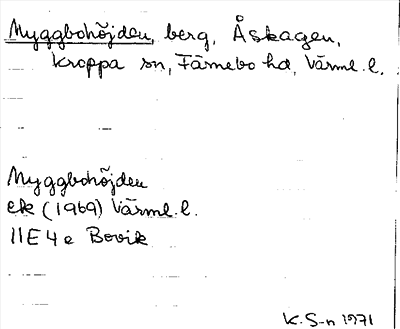 Myggbohöjden, berg, Åskagen,
Kroppa sn, Färnebo hd, Värml. l.
Myggbohöjden
ek (1969) Värml. l.
11E 4e Bovik
K. S-n 1971